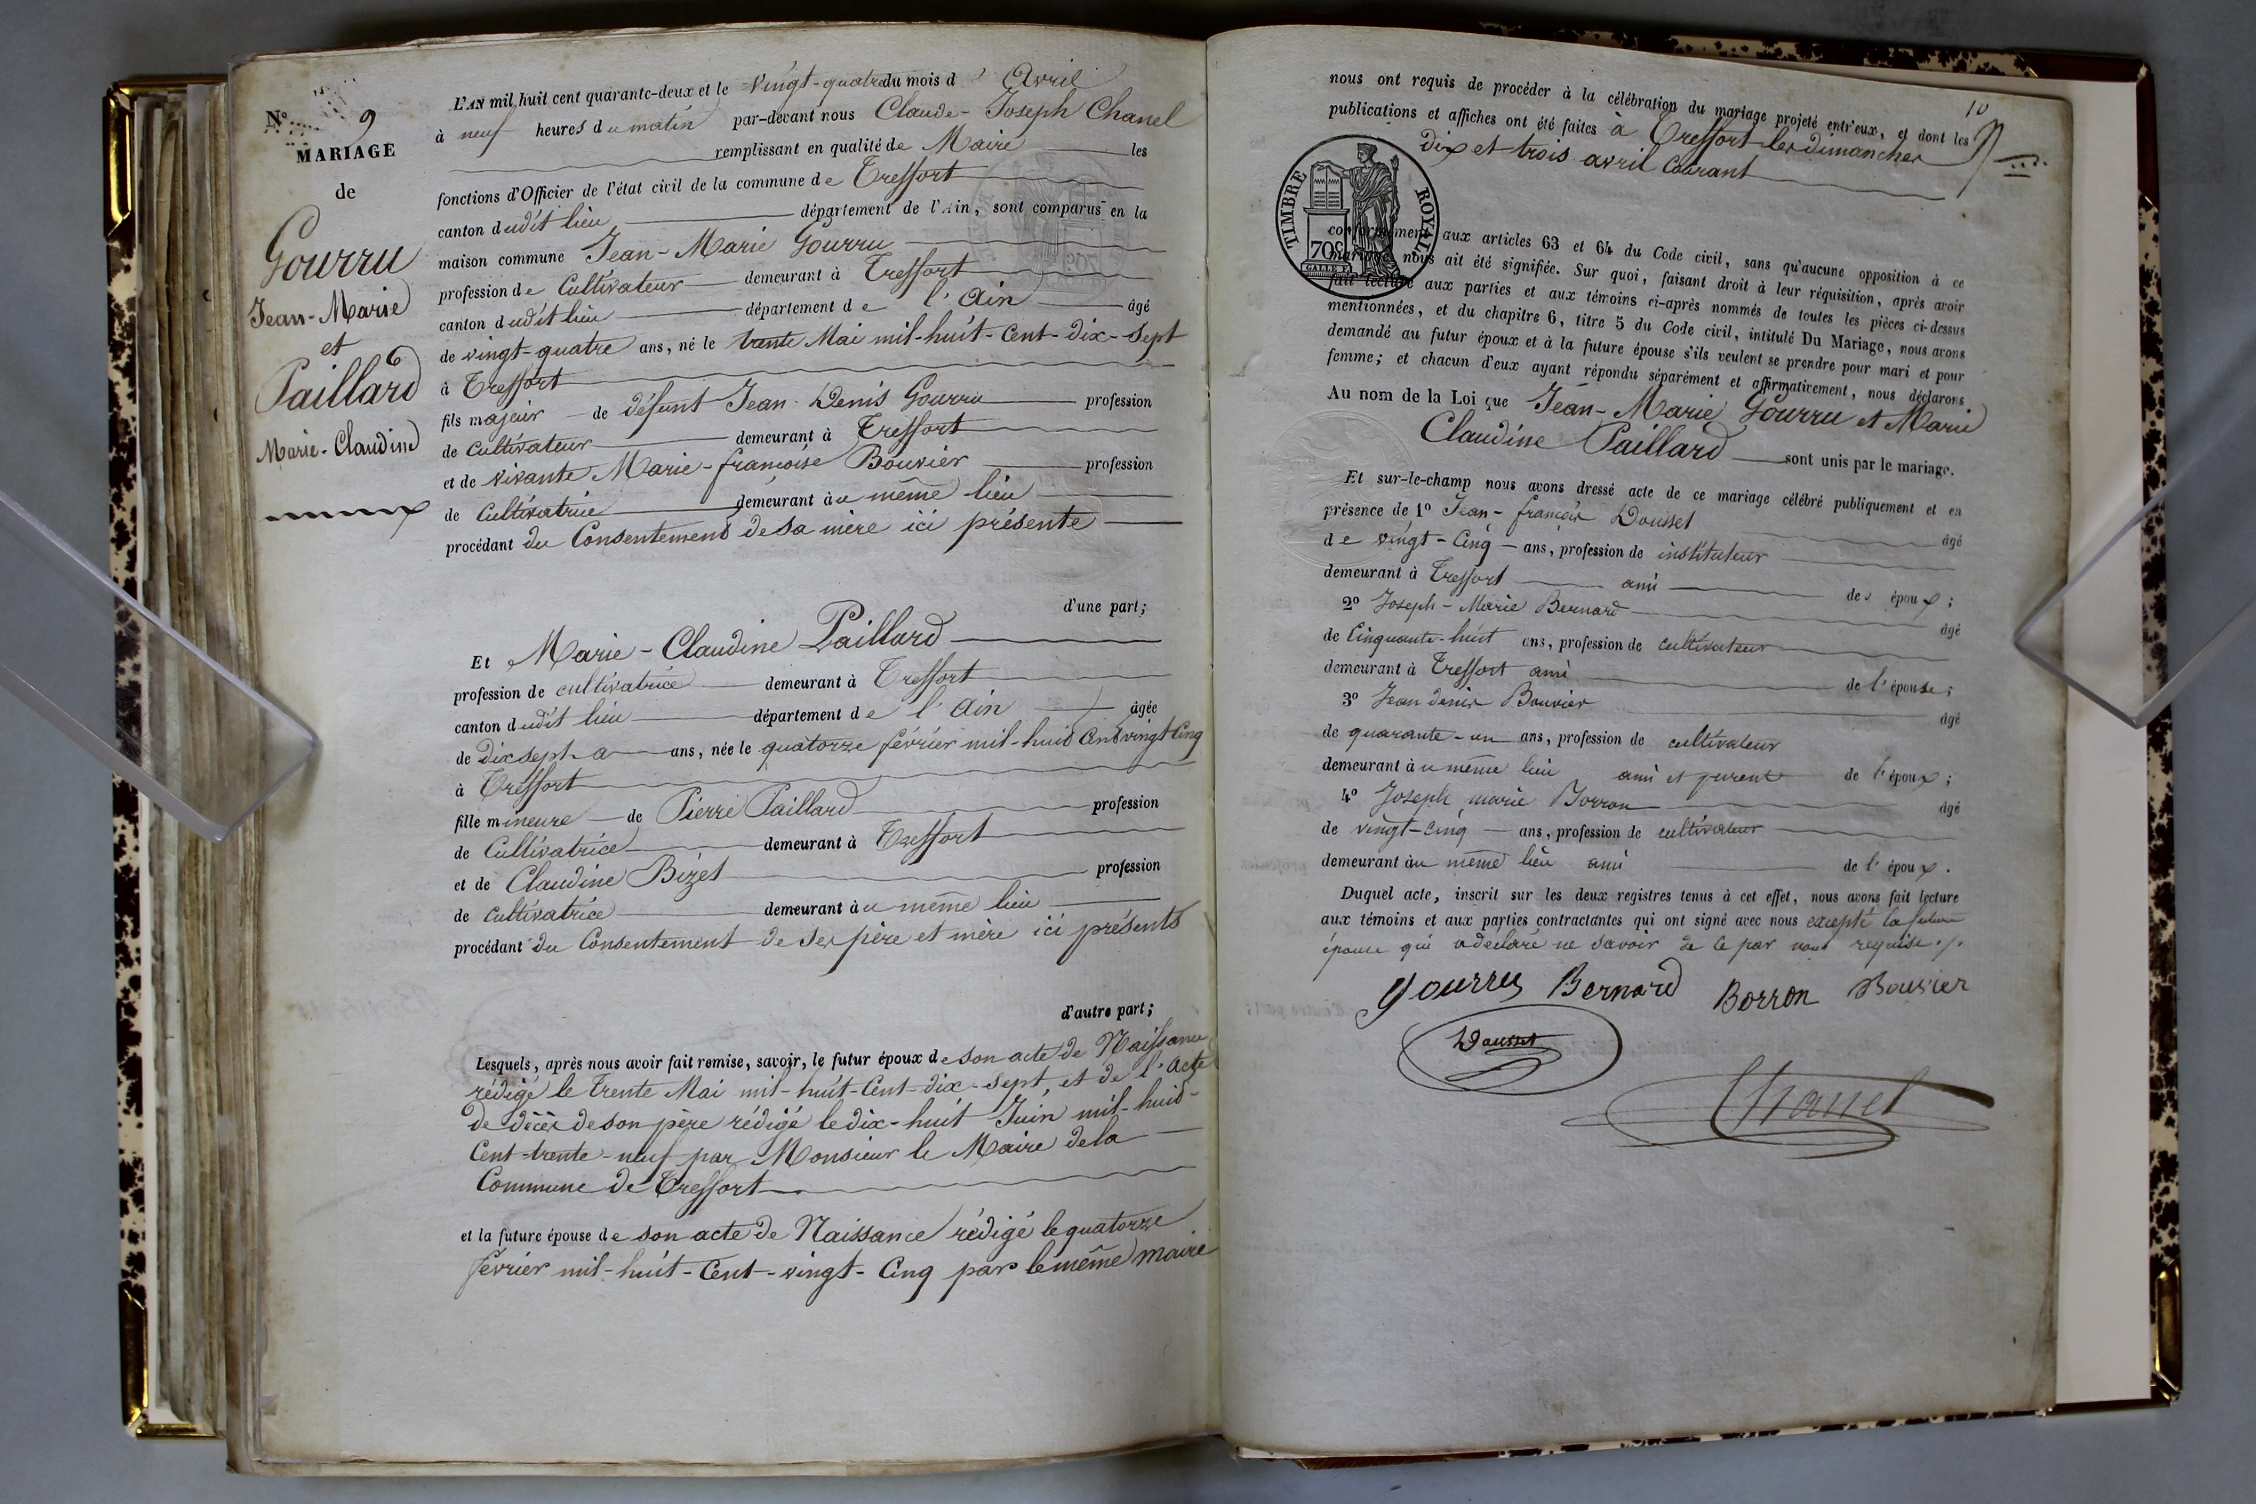 N° 9
MARIAGE
de
Gourru
Jean-Marie
et
Paillard
Marie-Claudine
L'AN mil huit cent quarante-deux et le vingt-quatre du mois d' Avril
à neuf heures du matin par-devant nous Claude-Joseph Chanel
remplissant en qualité de Maire les
fonctions d'Officier de l'état civil de la commune de Treffort
canton dudit lieu département de l'Ain, sont comparus en la
maison commune Jean-Marie Gourru
profession de Cultivateur demeurant à Treffort
canton dudit lieu département de l'Ain âgé
de vingt-quatre ans, né le trente Mai mil-huit-Cent-dix-Sept
à Treffort
fils majeur de défunt Jean-Denis Gourru profession
de cultivateur demeurant à Treffort
et de vivante Marie-françoise Bouvier profession
de cultivatrice demeurant au même lieu
procédant du Consentement de sa mère ici présente
d'une part;
Et Marie-Claudine Paillard
profession de cultivatrice demeurant à Treffort
canton dudit lieu département de l'Ain âgée
de dix sept ans, née le quatorze février mil-huit Cent vingt Cinq
à Treffort
fille mineure de Pierre Paillard profession
de Cultivatrice demeurant à Treffort
et de Claudine Bizet profession
de cultivatrice demeurant au même lieu
procédant du Consentement de ses père et mère ici présents
d'autre part;
Lesquels, après nous avoir fait remise, savoir, le futur époux de son acte de Naissance
rédigé le trente Mai mil-huit-Cent-dix-Sept et de l'acte
de décès de son père rédigé le dix-huit Juin mil-huit-
Cent-trente-neuf par Monsieur le Maire de la
Commune de Treffort
et la future épouse de son acte de Naissance rédigé le quatorze
février mil-huit-Cent-vingt-Cinq par le même maire
10
nous ont requis de procéder à la célébration du mariage projeté entr'eux, et dont les
publications et affiches ont été faites à Treffort les dimanches
dix et trois avril Courant
TIMBRE ROYAL
70c
conformément aux articles 63 et 64 du Code civil, sans qu'aucune opposition à ce
mariage nous ait été signifiée. Sur quoi, faisant droit à leur réquisition, après avoir
fait lecture aux parties et aux témoins ci-après nommés de toutes les pièces ci-dessus
mentionnées, et du chapitre 6, titre 5 du Code civil, intitulé Du Mariage, nous avons
demandé au futur époux et à la future épouse s'ils veulent se prendre pour mari et pour
femme; et chacun d'eux ayant répondu séparément et affirmativement, nous déclarons
Au nom de la Loi que Jean-Marie Gourru et Marie
Claudine Paillard sont unis par le mariage.
Et sur-le-champ nous avons dressé acte de ce mariage célébré publiquement et en
présence de 1° Jean-françois Dousset
âgé
de vingt-Cinq ans, profession de instituteur
demeurant à Treffort ami de l' époux;
2° Joseph-Marie Bernard
âgé
de Cinquante-huit ans, profession de cultivateur
demeurant à Treffort ami de l'épouse;
3° Jean denis Bouvier
âgé
de quarante-un ans, profession de cultivateur
demeurant au même lieu ami et parent de l'époux;
4° Joseph marie Borron
âgé
de vingt-cinq ans, profession de cultivateur
demeurant au même lieu ami de l'époux.
Duquel acte, inscrit sur les deux registres tenus à cet effet, nous avons fait lecture
aux témoins et aux parties contractantes qui ont signé avec nous excepté la future
épouse qui a déclaré ne savoir de ce par nous requise ./.
Gourru Bernard Borron Bouvier
Dousset
Chanel